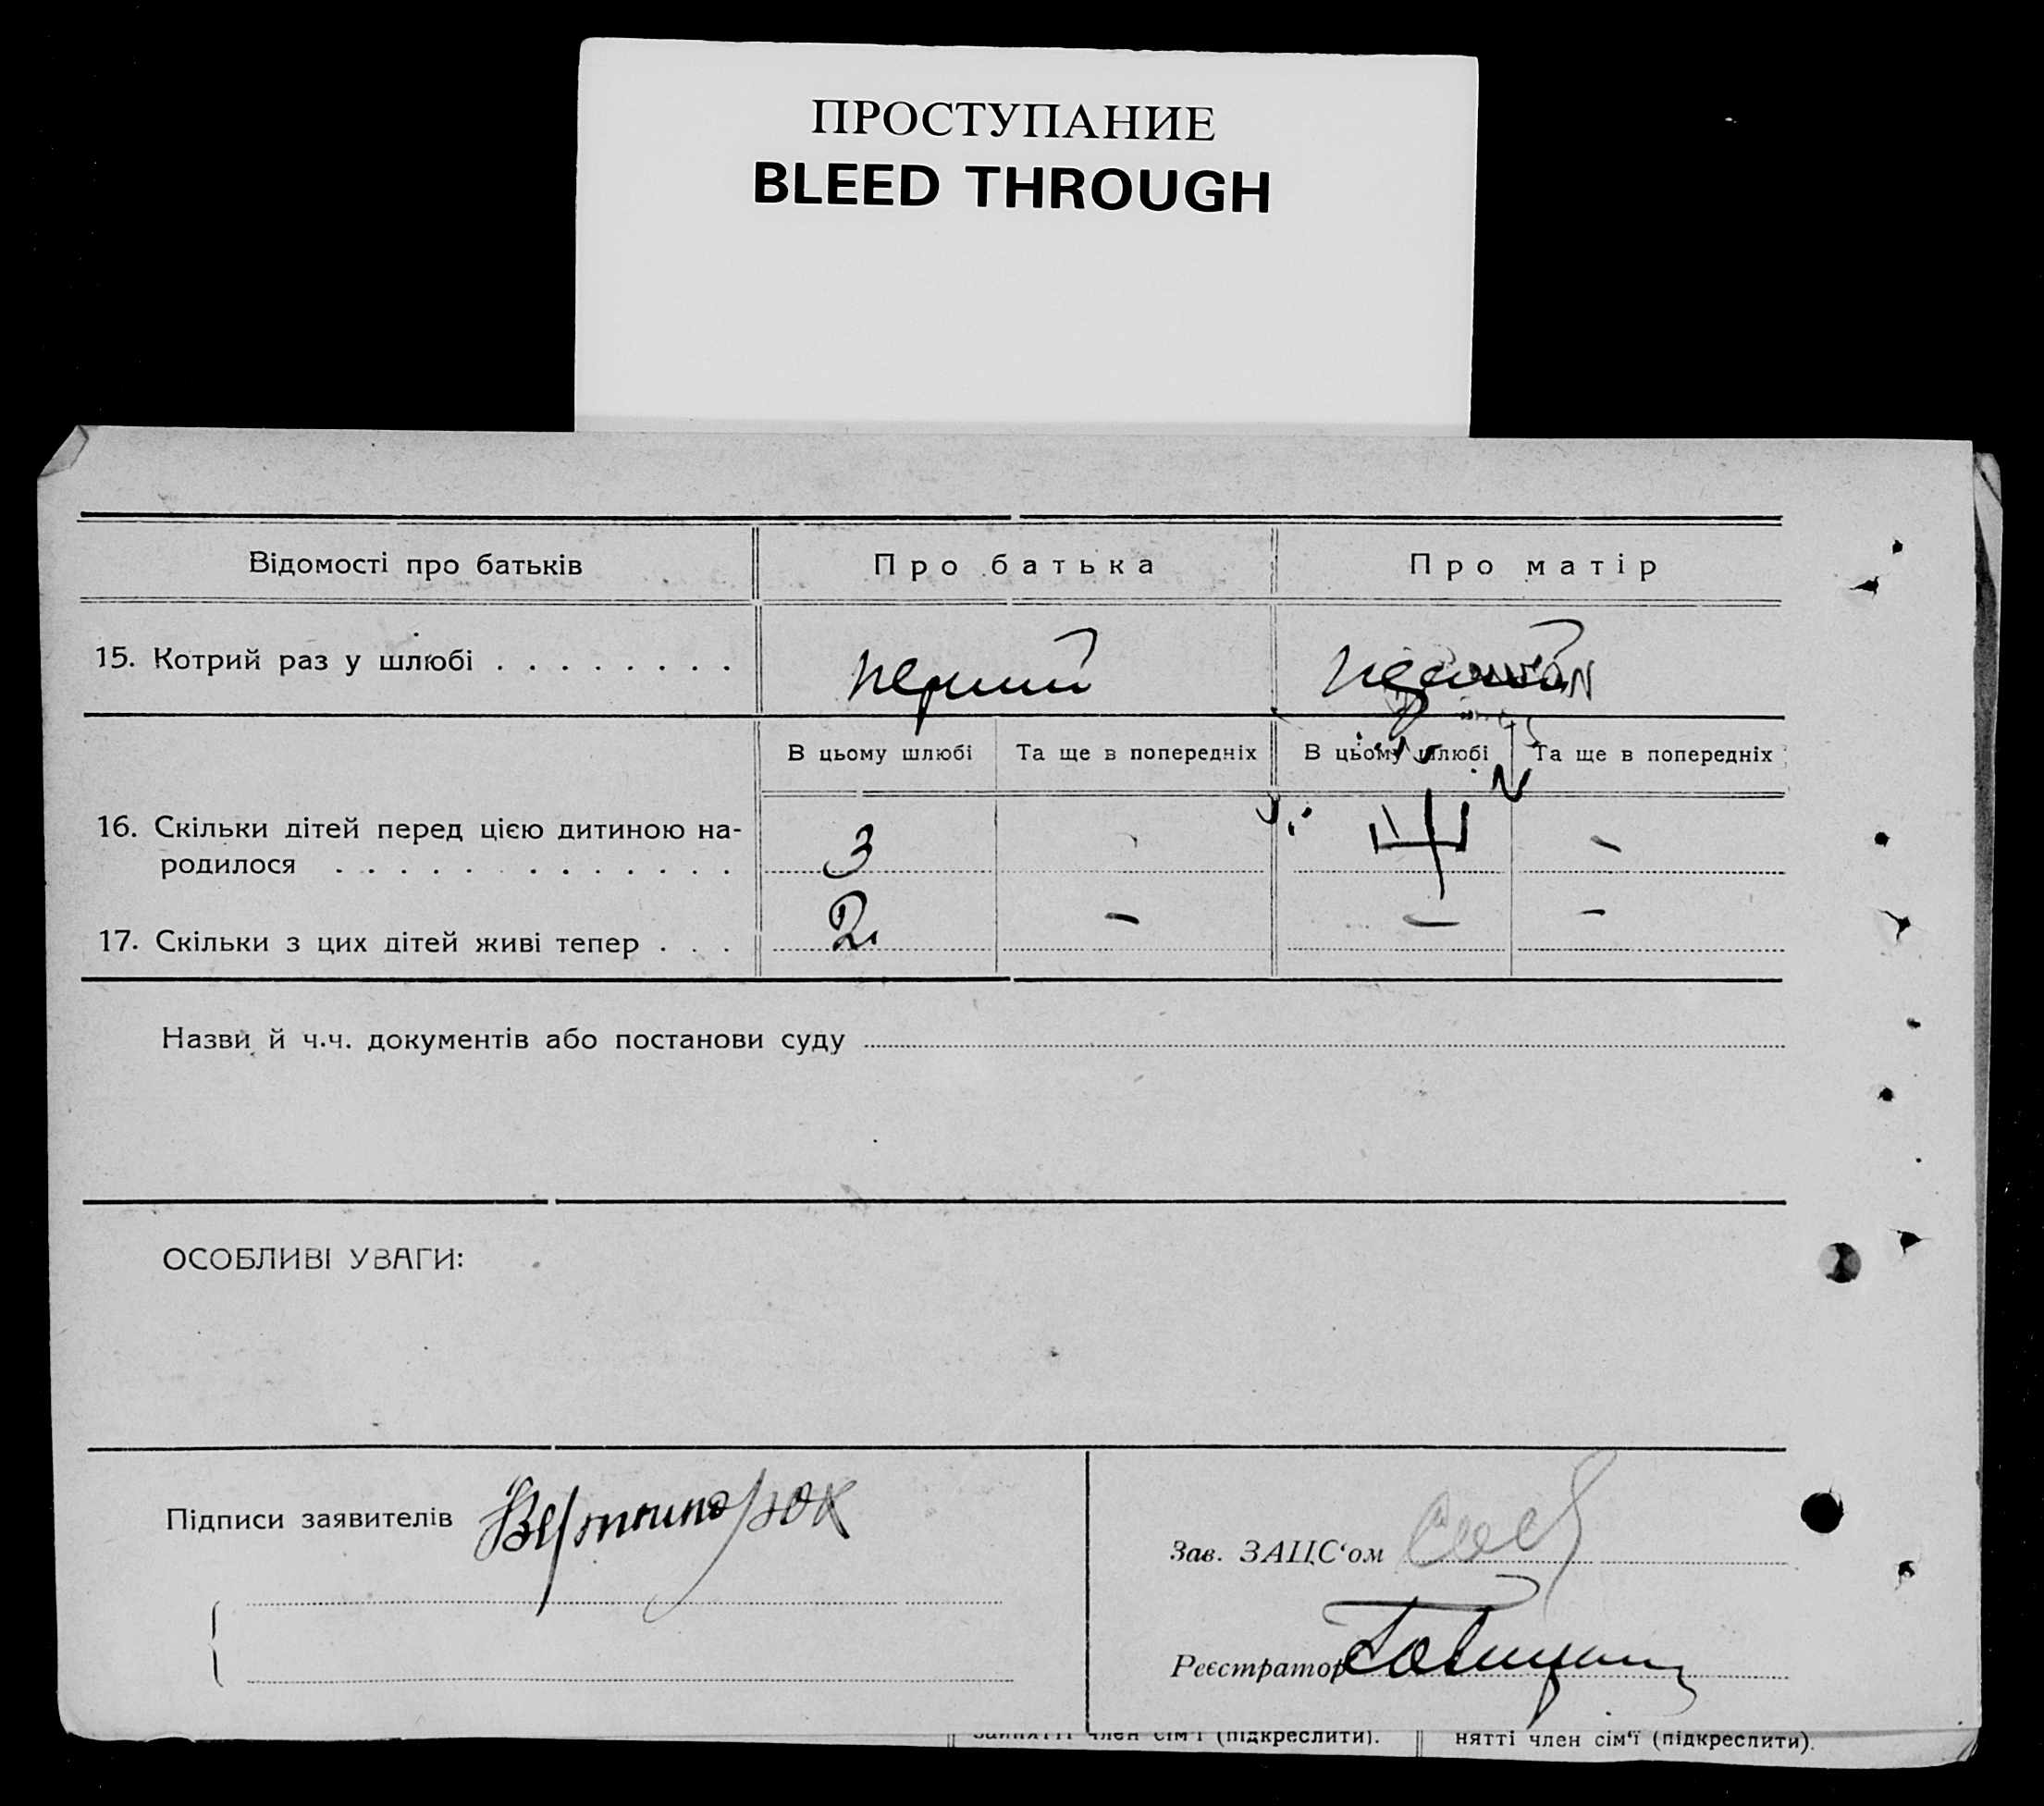 ПРОСТУПАНИЕ
BLEED THROUGH
Відомості про батьків
Про батька
Про матір
15. Котрий раз у шлюбі
перший
перший
В цьому шлюбі
Та ще в попередніх
В цьому шлюбі
Та ще в попередніх
16. Скільки дітей перед цією дитиною на-
родилося
3
-
17. Скільки з цих дітей живі тепер
2
-
-
-
Назви й ч.ч. документів або постанови суду
ОСОБЛИВІ УВАГИ:
Підписи заявителів
Зав. ЗАЦС‘ом
Реєстратор
член сім‘ї (підкреслити).
нятті член сім‘ї (підкреслити).